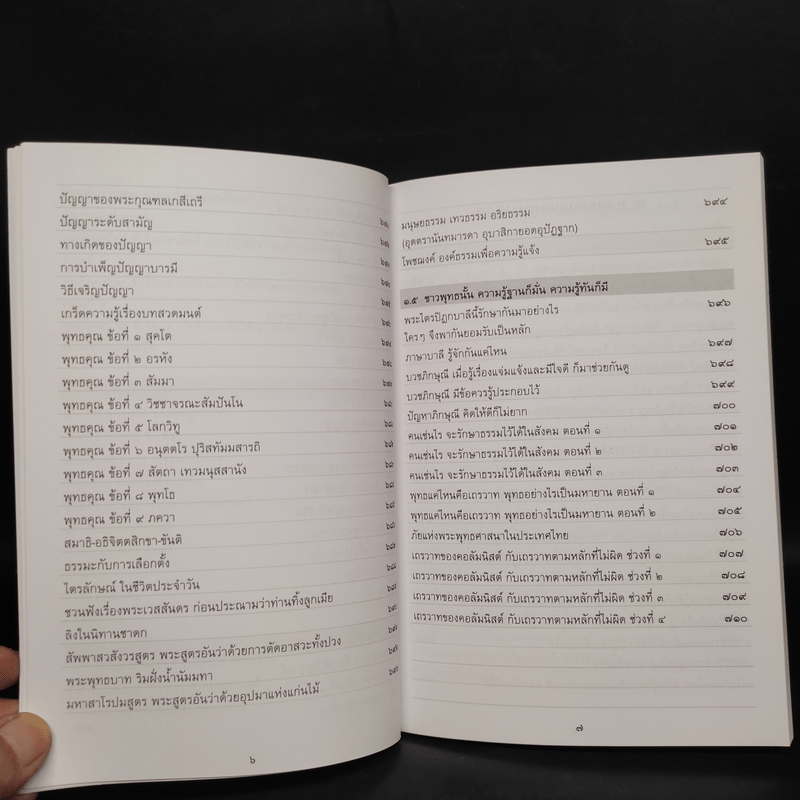 ปัญญาของพระกุณฑลเกสีเถรี
ปัญญาระดับสามัญ
ทางเกิดของปัญญา
การบำเพ็ญปัญญาบารมี
วิธีเจริญปัญญา
เกร็ดความรู้เรื่องบทสวดมนต์
พุทธคุณ ข้อที่ ๑ สุคโต
พุทธคุณ ข้อที่ ๒ อรหัง
พุทธคุณ ข้อที่ ๓ สัมมา
พุทธคุณ ข้อที่ ๔ วิชชาจรณะสัมปันโน
พุทธคุณ ข้อที่ ๕ โลกวิทู
พุทธคุณ ข้อที่ ๖ อนุตตโร ปุริสทัมมสารถิ
พุทธคุณ ข้อที่ ๗ สัตถา เทวมนุสสานัง
พุทธคุณ ข้อที่ ๘ พุทโธ
พุทธคุณ ข้อที่ ๙ ภควา
สมาธิ-อธิจิตตสิกขา-ขันติ
ธรรมะกับการเลือกตั้ง
ไตรลักษณ์ ในชีวิตประจำวัน
ชวนฟังเรื่องพระเวสสันดร ก่อนประณามว่าท่านทิ้งลูกเมีย
ลิงในนิทานชาดก
สัพพาสวสังวรสูตร พระสูตรอันว่าด้วยการตัดอาสวะทั้งปวง
พระพุทธบาท ริมฝั่งน้ำนัมมทา
มหาสาโรปมสูตร พระสูตรอันว่าด้วยอุปมาแห่งแก่นไม้
๖
มนุษยธรรม เทวธรรม อริยธรรม ๖๙๔
(อุตตรานันทมารดา อุบาสิกายอดอุปัฏฐาก)
โพชฌงค์ องค์ธรรมเพื่อความรู้แจ้ง ๖๙๕
๑.๕ ชาวพุทธนั้น ความรู้ฐานก็มั่น ความรู้ทันก็มี
พระไตรปิฎกบาลีนี้รักษากันมาอย่างไร ๖๙๖
ใครๆ จึงพากันยอมรับเป็นหลัก
ภาษาบาลี รู้จักกันแค่ไหน ๖๙๗
บวชภิกษุณี เมื่อรู้เรื่องแจ่มแจ้งและมีใจดี ก็มาช่วยกันดู ๖๙๘
บวชภิกษุณี มีข้อควรรู้ประกอบไว้ ๖๙๙
ปัญหาภิกษุณี คิดให้ดีก็ไม่ยาก ๗๐๐
คนเช่นไร จะรักษาธรรมไว้ได้ในสังคม ตอนที่ ๑ ๗๐๑
คนเช่นไร จะรักษาธรรมไว้ได้ในสังคม ตอนที่ ๒ ๗๐๒
คนเช่นไร จะรักษาธรรมไว้ได้ในสังคม ตอนที่ ๓ ๗๐๓
พุทธแค่ไหนคือเถรวาท พุทธอย่างไรเป็นมหายาน ตอนที่ ๑ ๗๐๔
พุทธแค่ไหนคือเถรวาท พุทธอย่างไรเป็นมหายาน ตอนที่ ๒ ๗๐๕
ภัยแห่งพระพุทธศาสนาในประเทศไทย ๗๐๖
เถรวาทของคอลัมนิสต์ กับเถรวาทตามหลักที่ไม่ผิด ช่วงที่ ๑ ๗๐๗
เถรวาทของคอลัมนิสต์ กับเถรวาทตามหลักที่ไม่ผิด ช่วงที่ ๒ ๗๐๘
เถรวาทของคอลัมนิสต์ กับเถรวาทตามหลักที่ไม่ผิด ช่วงที่ ๓ ๗๐๙
เถรวาทของคอลัมนิสต์ กับเถรวาทตามหลักที่ไม่ผิด ช่วงที่ ๔ ๗๑๐
๗